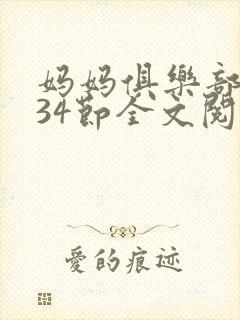 妈妈俱樂部
34節全文閱
愛的痕迹